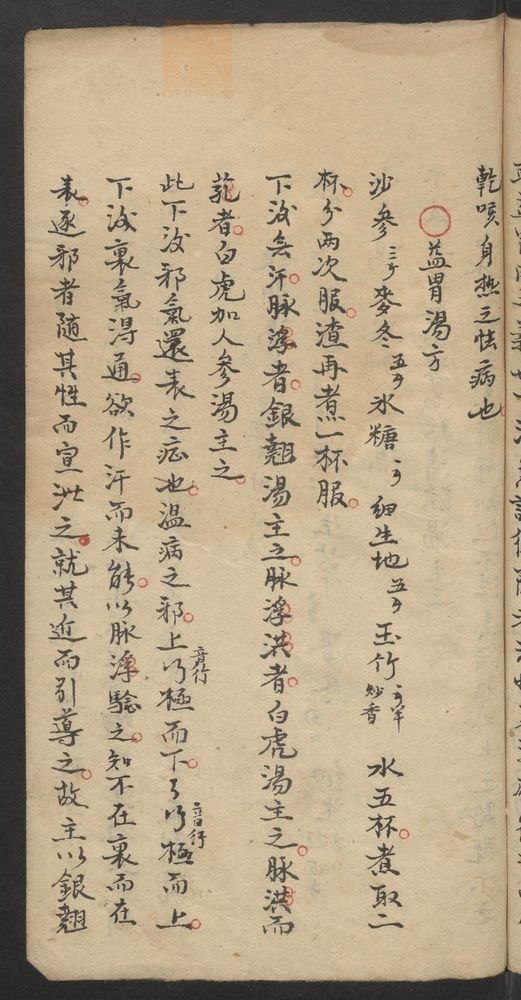 乾咳身熱之怯病也
益胃湯方
沙參三錢麥冬五錢氷糖一錢細生地五錢玉竹一錢半炒香 水五杯煮取二
杯分兩次服渣再煮一杯服
下後無汗脉浮者銀翹湯主之脉浮洪者白虎湯主之脉洪而
芤者白虎加人參湯主之
此下後邪氣還表之症也溫病之邪上行音行極而下下行音行極而上
下後裏氣得通欲作汗而未能以脉浮驗之知不在裏而在
表逐邪者隨其性而宣泄之就其近而引導之故主以銀翹